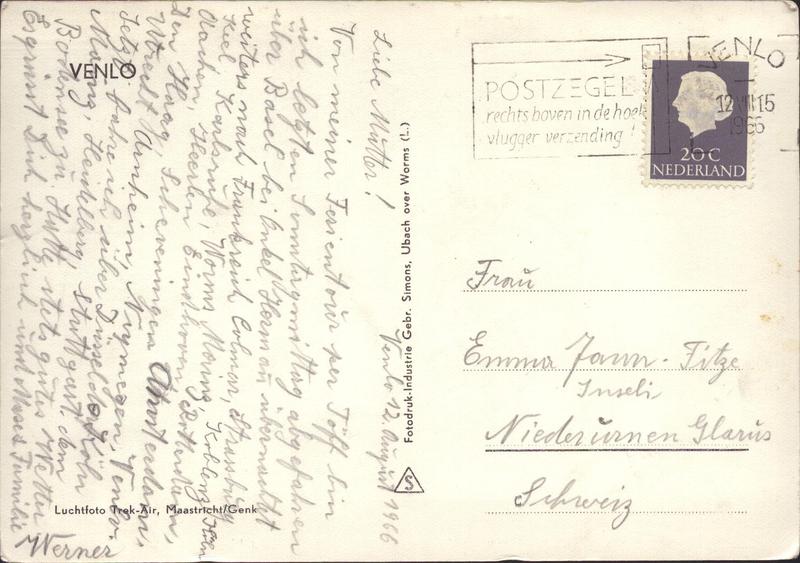 VENLO
Venlo 12. August 1966
Liebe Mutter!
Von meiner Ferientour per Töff bin
ich letzten Sonntagmittag abgefahren
über Basel bei Onkel Herman übernachtet
weiters nach Frankreich Colmar, Strassburg
Kiel, Karlsruhe, Worms, Mainz, Koblenz, Köln
Aachen, Heerlen, Eindhoven, Rotterdam,
Den Haag, Scheveningen Amsterdam,
Utrecht, Arnheim, Nijmegen, Venlo.
Jetzt fahre ich über Düsseldorf, Köln
Mainz, Heidelberg, Stuttgart dem
Bodensee zu. Hatte stets gutes Wetter
Es grüsst Dich herzlich und Familie
Werner
Luchtfoto Trek-Air, Maastricht/Genk
Fotodruk-Industrie Gebr. Simons, Ubach over Worms (L.)
S
POSTZEGEL
rechts boven in de hoek
vlugger verzending!
VENLO
12 VIII 15
1966
20 C
NEDERLAND
Frau
Emma Jann-Fitze
Inseli
Niederurnen Glarus
Schweiz